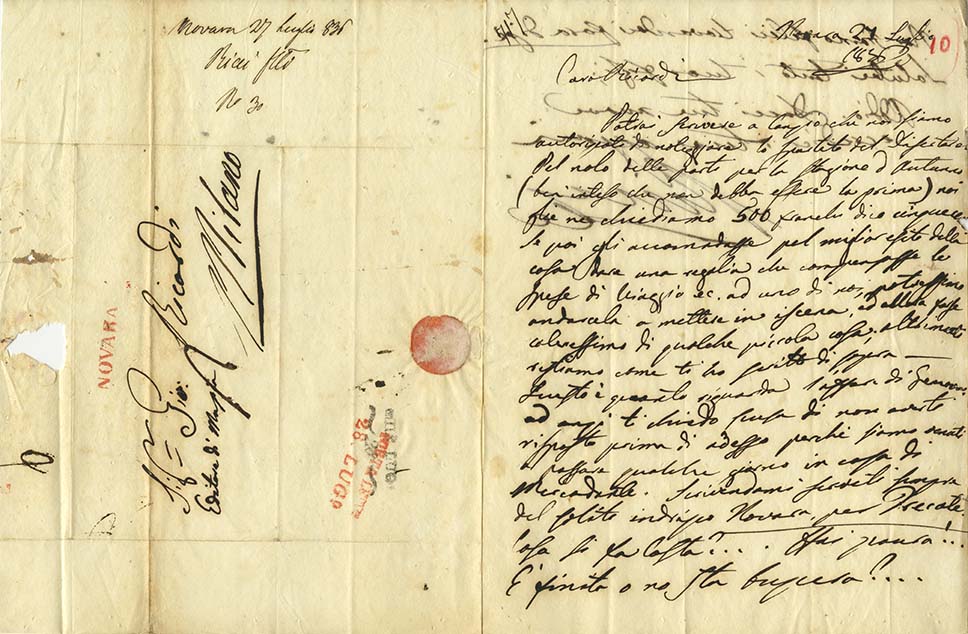 Novara 27 Luglio 836
Ricci flli
No 30
Milano
Ricordi
Sigr Gio.
Editore di Musica
NOVARA
28 LUGO
10
Novara 27 Luglio
1836
Caro Ricordi
Potrai scrivere a che noi siamo
autorizzati di noleggiare lo spartito del Disertore
Pel nolo delle parti per la stagione d'Autunno
(beninteso che non debba essere la prima) noi
gliene chiediamo 500 franchi dico cinquecento
Se poi gli accomodasse pel miglior esito della
cosa dare una regalia che compensasse le
spese di viaggio ec. ad uno di noi, potressimo
andarcela a mettere in iscena, ed allora
calaressimo di qualche piccola cosa, altrimenti
restiamo come ti ho scritto di sopra —
Questo è quanto riguarda l'affare di Genova
ad anzi ti chiedo scusa di non averti
risposto prima di adesso perchè siamo venuti
a passare qualche giorno in casa di
Mercadante. Scrivendomi serviti sempre
del solito indirizzo Novara, per Trecate
Cosa si fa costà?... Hai paura?..
È finita o no sta ....